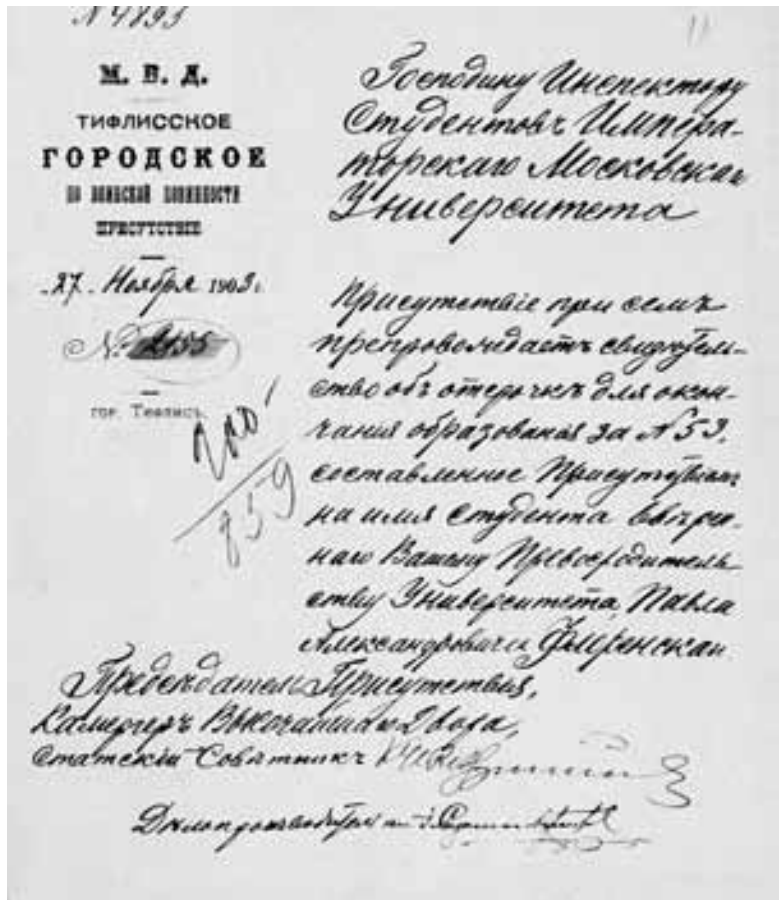 N 4893
11
М. В. Д.
ТИФЛИССКОЕ
ГОРОДСКОЕ
ПО ВОИНСКОЙ ПОВИННОСТИ
ПРИСУТСТВІЕ
27 Ноября 1903 г.
№ 2155
гор. Тифлисъ
859
Господину Инспектору
Студентовъ Импера-
торскаго Московскаго
Университета
Присутствіе при семъ
препровождаетъ свидѣтель-
ство объ отсрочкѣ для окон-
чанія образованія за N 53,
составленное Присутствіемъ
на имя студента ввѣрен-
наго Вашему Превосходитель-
ству Университета, Павла
Александровича Флоренскаго.
Предсѣдатель Присутствія,
Камергеръ Высочайшаго Двора,
Статскій Совѣтникъ
Дѣлопроизводитель